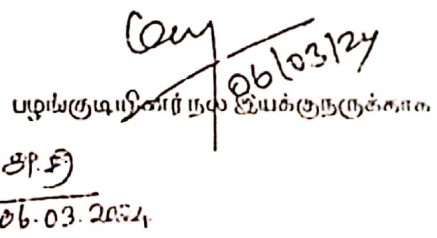 06/03/24
பழங்குடியினர் நல இயக்குநருக்காக
06.03.2024